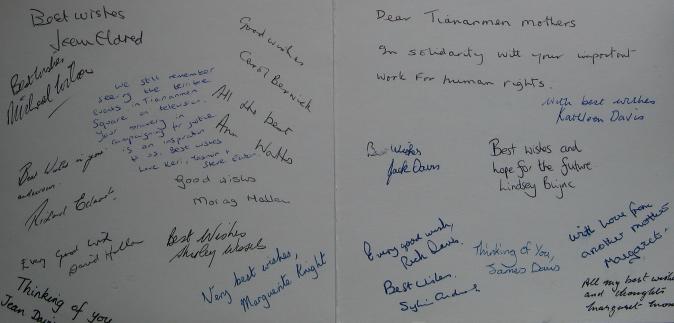 Best wishes
Jean Eldred
Best wishes
Michael
Good wishes
Carol Berwick
We still remember
seeing the terrible
events in Tiananmen
Square on television.
Your bravery in
campaigning for justice
is an inspiration
to us. Best wishes
Love Keri,
Steve
All the best
Ann Watts
Best Wishes in your
endeavours.
Richard
Good wishes
Morag
Every Good wish
David
Best Wishes
Shirley
Very best wishes,
Marguerite Knight
Thinking of you
Jean
Dear Tiananmen mothers
In solidarity with your important
work for human rights.
With best wishes
Kathleen Davis
Best Wishes
Jack Davis
Best wishes and
hope for the future
Lindsey
Every good wish,
Rich Davis.
Best wishes.
Sylvia
Thinking of You,
James Davis
With love from
another mother
Margaret.
All my best wishes
and thoughts
Margaret